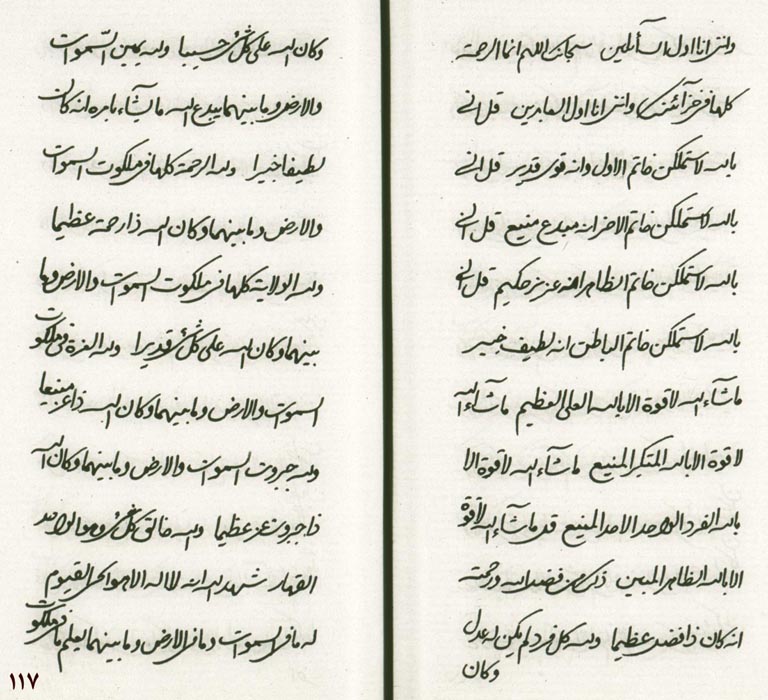 وانني انا اول السآئلين سبحانك اللهم انما الرحمة
كلها في خزآئنك وانني انا اول العابدين قل انني
بالله لاستملكن خاتم الاول وانه قوي قدير قل انني
بالله لاستملكن خاتم الاخر انه مبدع منيع قل انني
بالله لاستملكن خاتم الظاهر انه عزيز حكيم قل انني
بالله لاستملكن خاتم الباطن انه لطيف خبير
ماشآء الله لا قوة الا بالله العلي العظيم ماشآء الله
لا قوة الا بالله المتكبر المنيع ماشآء الله لا قوة الا
بالله الفرد الواحد الاحد المنيع قل ماشآء الله لا قوة
الا بالله الظاهر المبين ذلك من فضل الله ورحمته
انه كان ذا فضل عظيما ولله كل فرد لم يكن له عدل
وكان
وكان الله على كل شئ حسيبا ولله يمين السموات
والارض وما بينهما يبدع الله ما يشآء بامره انه كان
لطيفا خبيرا ولله الرحمة كلها في ملكوت السموات
والارض وما بينهما وكان الله ذا رحمة عظيما
ولله الولاية كلها في ملكوت السموات والارض وما
بينهما وكان الله على كل شئ قديرا ولله العزة في ملكوت
السموات والارض وما بينهما وكان الله ذا عز منيعا
ولله جبروت السموات والارض وما بينهما وكان الله
ذا جبروت عز عظيما والله خالق كل شئ وهو الواحد
القهار شهد الله انه لا اله الا هو الحي القيوم
له ما في السموات وما في الارض وما بينهما يعلم ما في ملكوت
١١٧